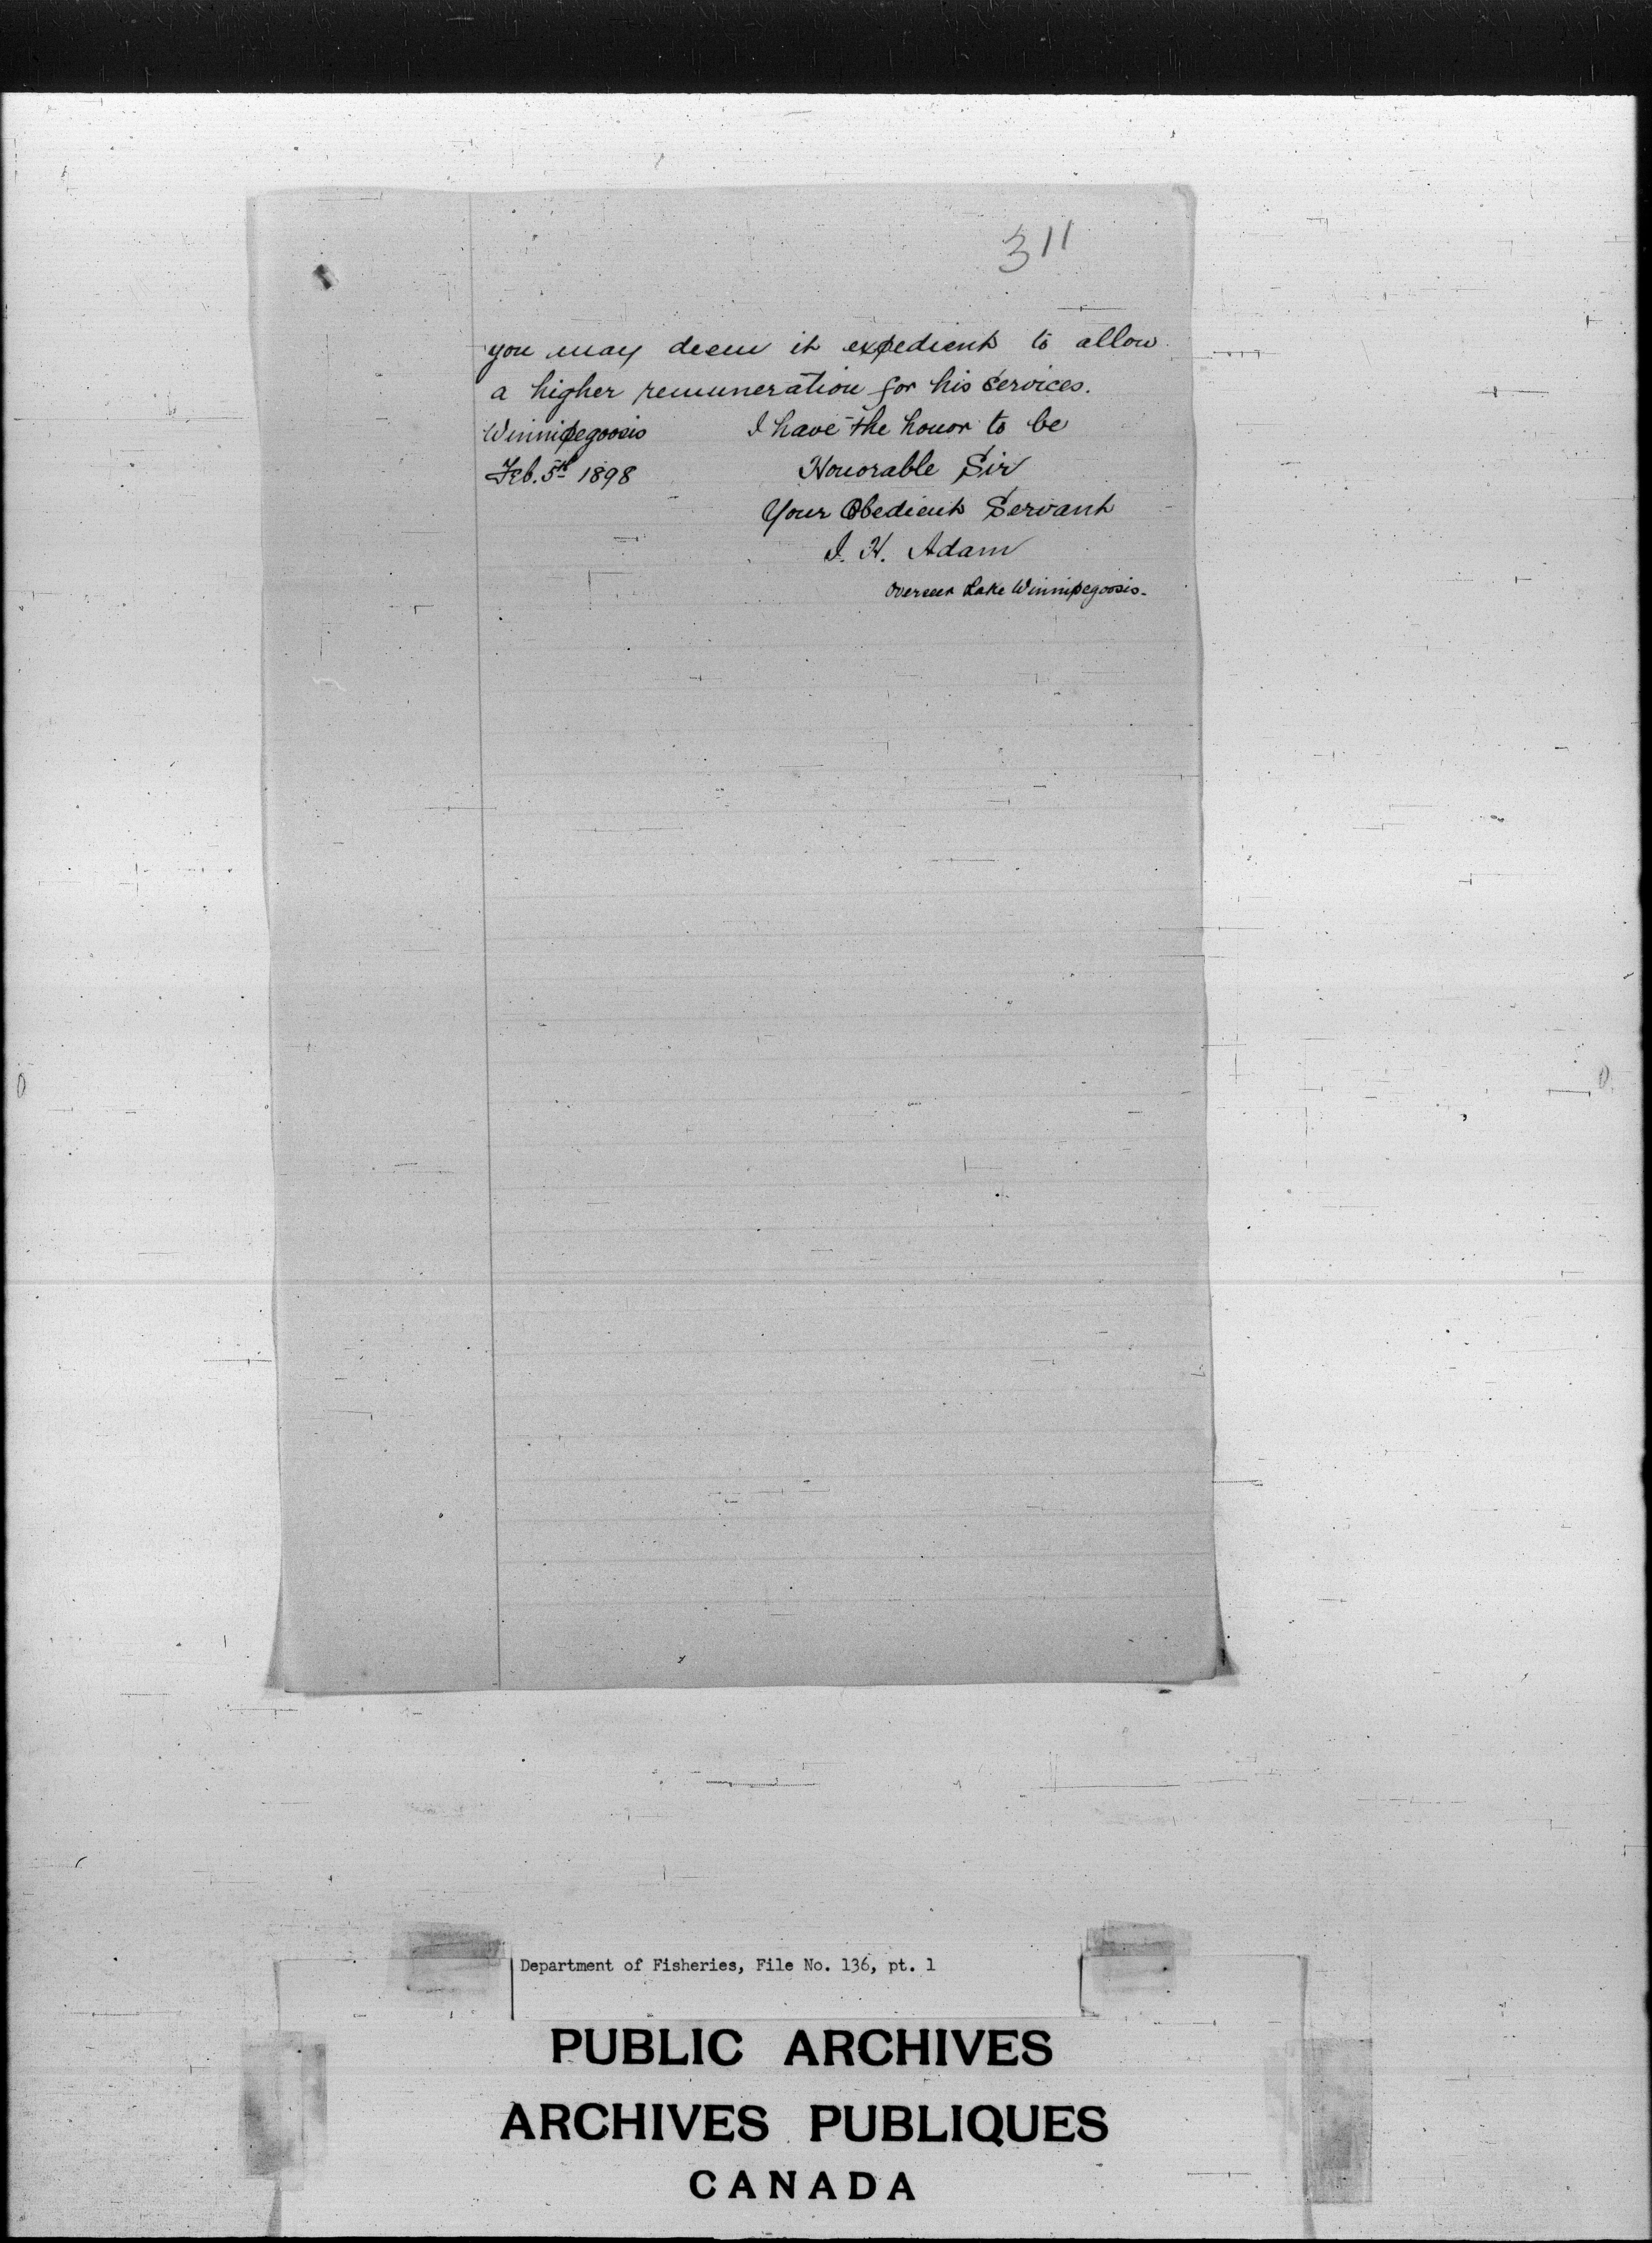 311
you may deem it expedient to allow
a higher remuneration for his services.
Winnipegoosis I have the honor to be
Feb. 5th 1898 Honorable Sir
Your Obedient Servant
I. H. Adam
Overseer Lake Winnipegoosis.
Department of Fisheries, File No. 136, pt. 1
PUBLIC ARCHIVES
ARCHIVES PUBLIQUES
CANADA